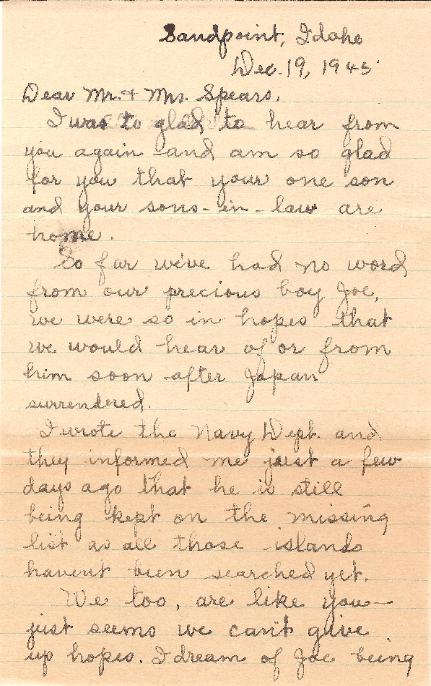 Sandpoint, Idaho
Dec. 19, 1945
Dear Mr. & Mrs. Spears,
I was to glad to hear from
you again and am so glad
for you that your one son
and your sons-in-law are
home.
So far we've had no word
from our precious boy Joe,
we were so in hopes that
we would hear of or from
him soon after Japan
surrendered.
I wrote the Navy Dept. and
they informed me just a few
days ago that he is still
being kept on the missing
list as all those islands
havent been searched yet.
We too, are like you—
just seems we can't give
up hopes. I dream of Joe being